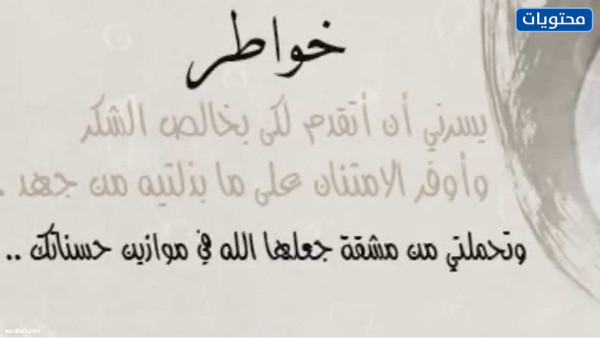 محتويات
خواطر
يسرني أن أتقدم لكى بخالص الشكر
وأوفر الامتنان على ما بذلتيه من جهد .
وتحملتي من مشقة جعلها الله في موازين حسناتك ..